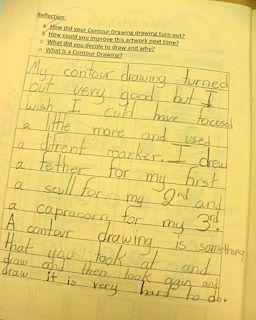 Reflection:
How did your Contour Drawing drawing turn out?
How could you improve this artwork next time?
What did you decide to draw and why?
What is a Contour Drawing?
My contour drawing turned
out very good but I
wish I culd have focused
a little more and used
a difrent marker. I drew
a tether for my first
a scull for my 2nd and
a capracorn for my 3rd.
A contour drawing is something
that you look at and
draw and then look gain and
draw it is very hard to do.